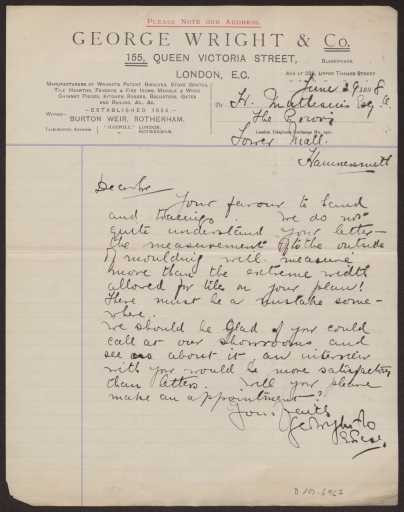 PLEASE NOTE OUR ADDRESS.
GEORGE WRIGHT & Co.
155, QUEEN VICTORIA STREET,
BLACKFRIARS
LONDON, E.C.
AND AT 
UPPER THAMES STREET
MANUFACTURERS OF WRIGHT'S PATENT GRATES, STOVE GRATES,
TILE HEARTHS, FENDERS & FIRE IRONS, MARBLE & WOOD
CHIMNEY PIECES, KITCHEN RANGES, 
GATES
AND RAILING, &c., &c.
ESTABLISHED
WORKS:
BURTON WEIR, ROTHERHAM.
TELEGRAPHIC ADDRESS
LONDON.
ROTHERHAM.
London Telephone Exchange No.
June 29 1908
To H. Muthesius Esq
The Priory
Lower Mall
Hammersmith
Dear Sir
Your favour to hand
and tracings. We do not
quite understand your letter
the measurement to the outside
of moulding will measure
more than the extreme width
allowed for tiles on your plan!
There must be a mistake some-
where.
We should be glad if you could
call at our showrooms and
see about it, an interview
with you would be more satisfactory
than letters. Will you please
make an appointment?
Yours faith
Geo Wright & Co